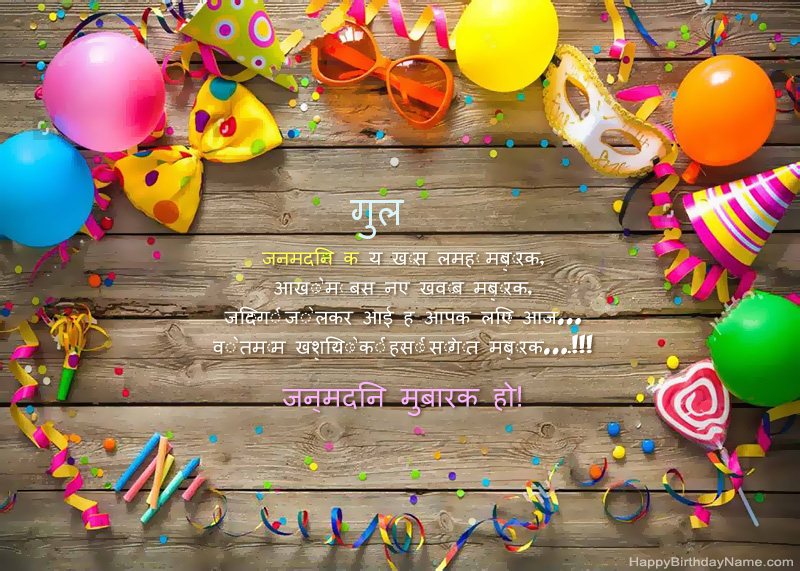 गुल
जनमदिन क य ख़ास लमह मुबारक,
आंखों में बस नए ख्वाब मुबारक,
जिंदगी जो लेकर आई ह आपक लिए आज...
वो तमाम खुशियों की हंसी सौगात मुबारक...!!!
जन्मदिन मुबारक हो!
HappyBirthdayName.com